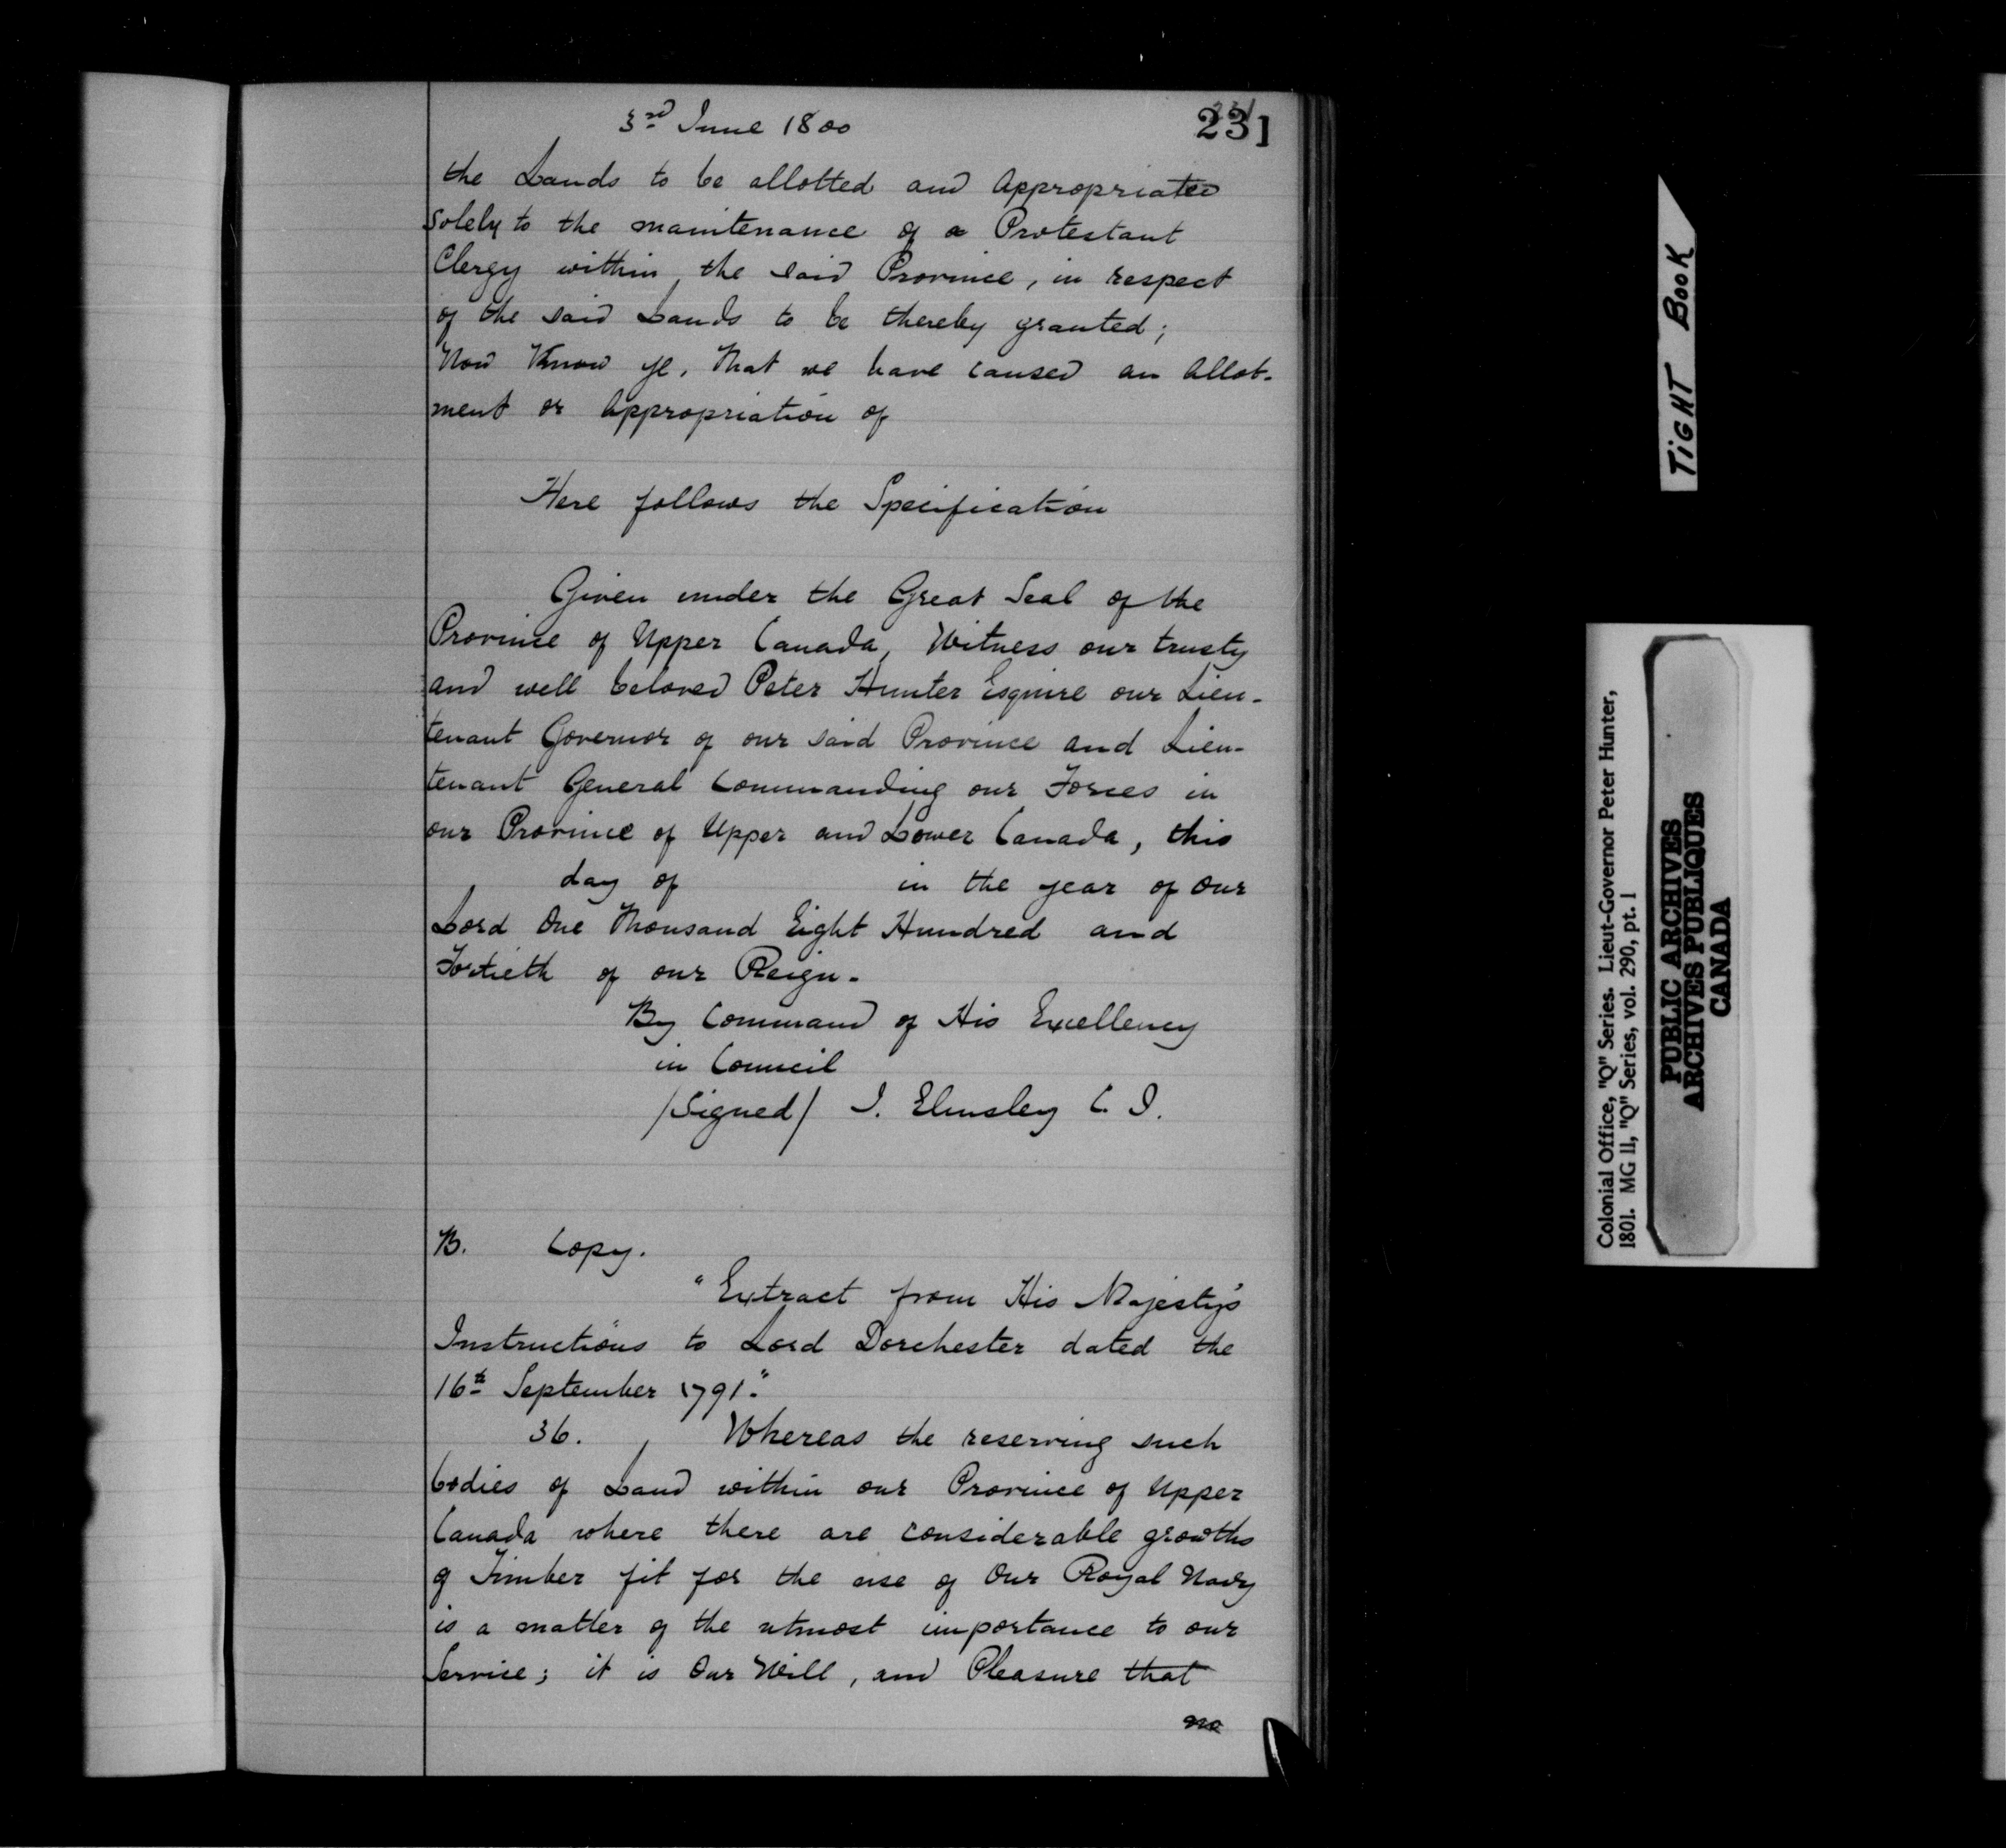 3rd June 1800
231
the Lands to be allotted and appropriated
solely to the maintenance of a Protestant
Clergy within the said Province, in respect
of the said Lands to be thereby granted;
Now Know ye, That we have caused an allot-
ment or appropriation of
Here follows the Specification
Given under the Great Seal of the
Province of Upper Canada, Witness our trusty
and well beloved Peter Hunter Esquire our Lieu-
tenant Governor of our said Province and Lieu-
tenant General Commanding our Forces in
our Province of Upper and Lower Canada, this
day of in the year of our
Lord One Thousand Eight Hundred and
Fortieth of our Reign.
By Command of His Excellency
in Council
/Signed/ J. Elmsley C. J.
B. Copy.
"Extract from His Majesty's
Instructions to Lord Dorchester dated the
16th September 1791."
36. Whereas the reserving such
bodies of Land within our Province of Upper
Canada where there are considerable growths
of Timber fit for the use of Our Royal Navy
is a matter of the utmost importance to our
Service; it is Our Will, and Pleasure that
no
TiGHT BOOK
Colonial Office, "Q" Series. Lieut-Governor Peter Hunter,
1801. MG 11, "Q" Series, vol. 290, pt. 1
PUBLIC ARCHIVES
ARCHIVES PUBLIQUES
CANADA